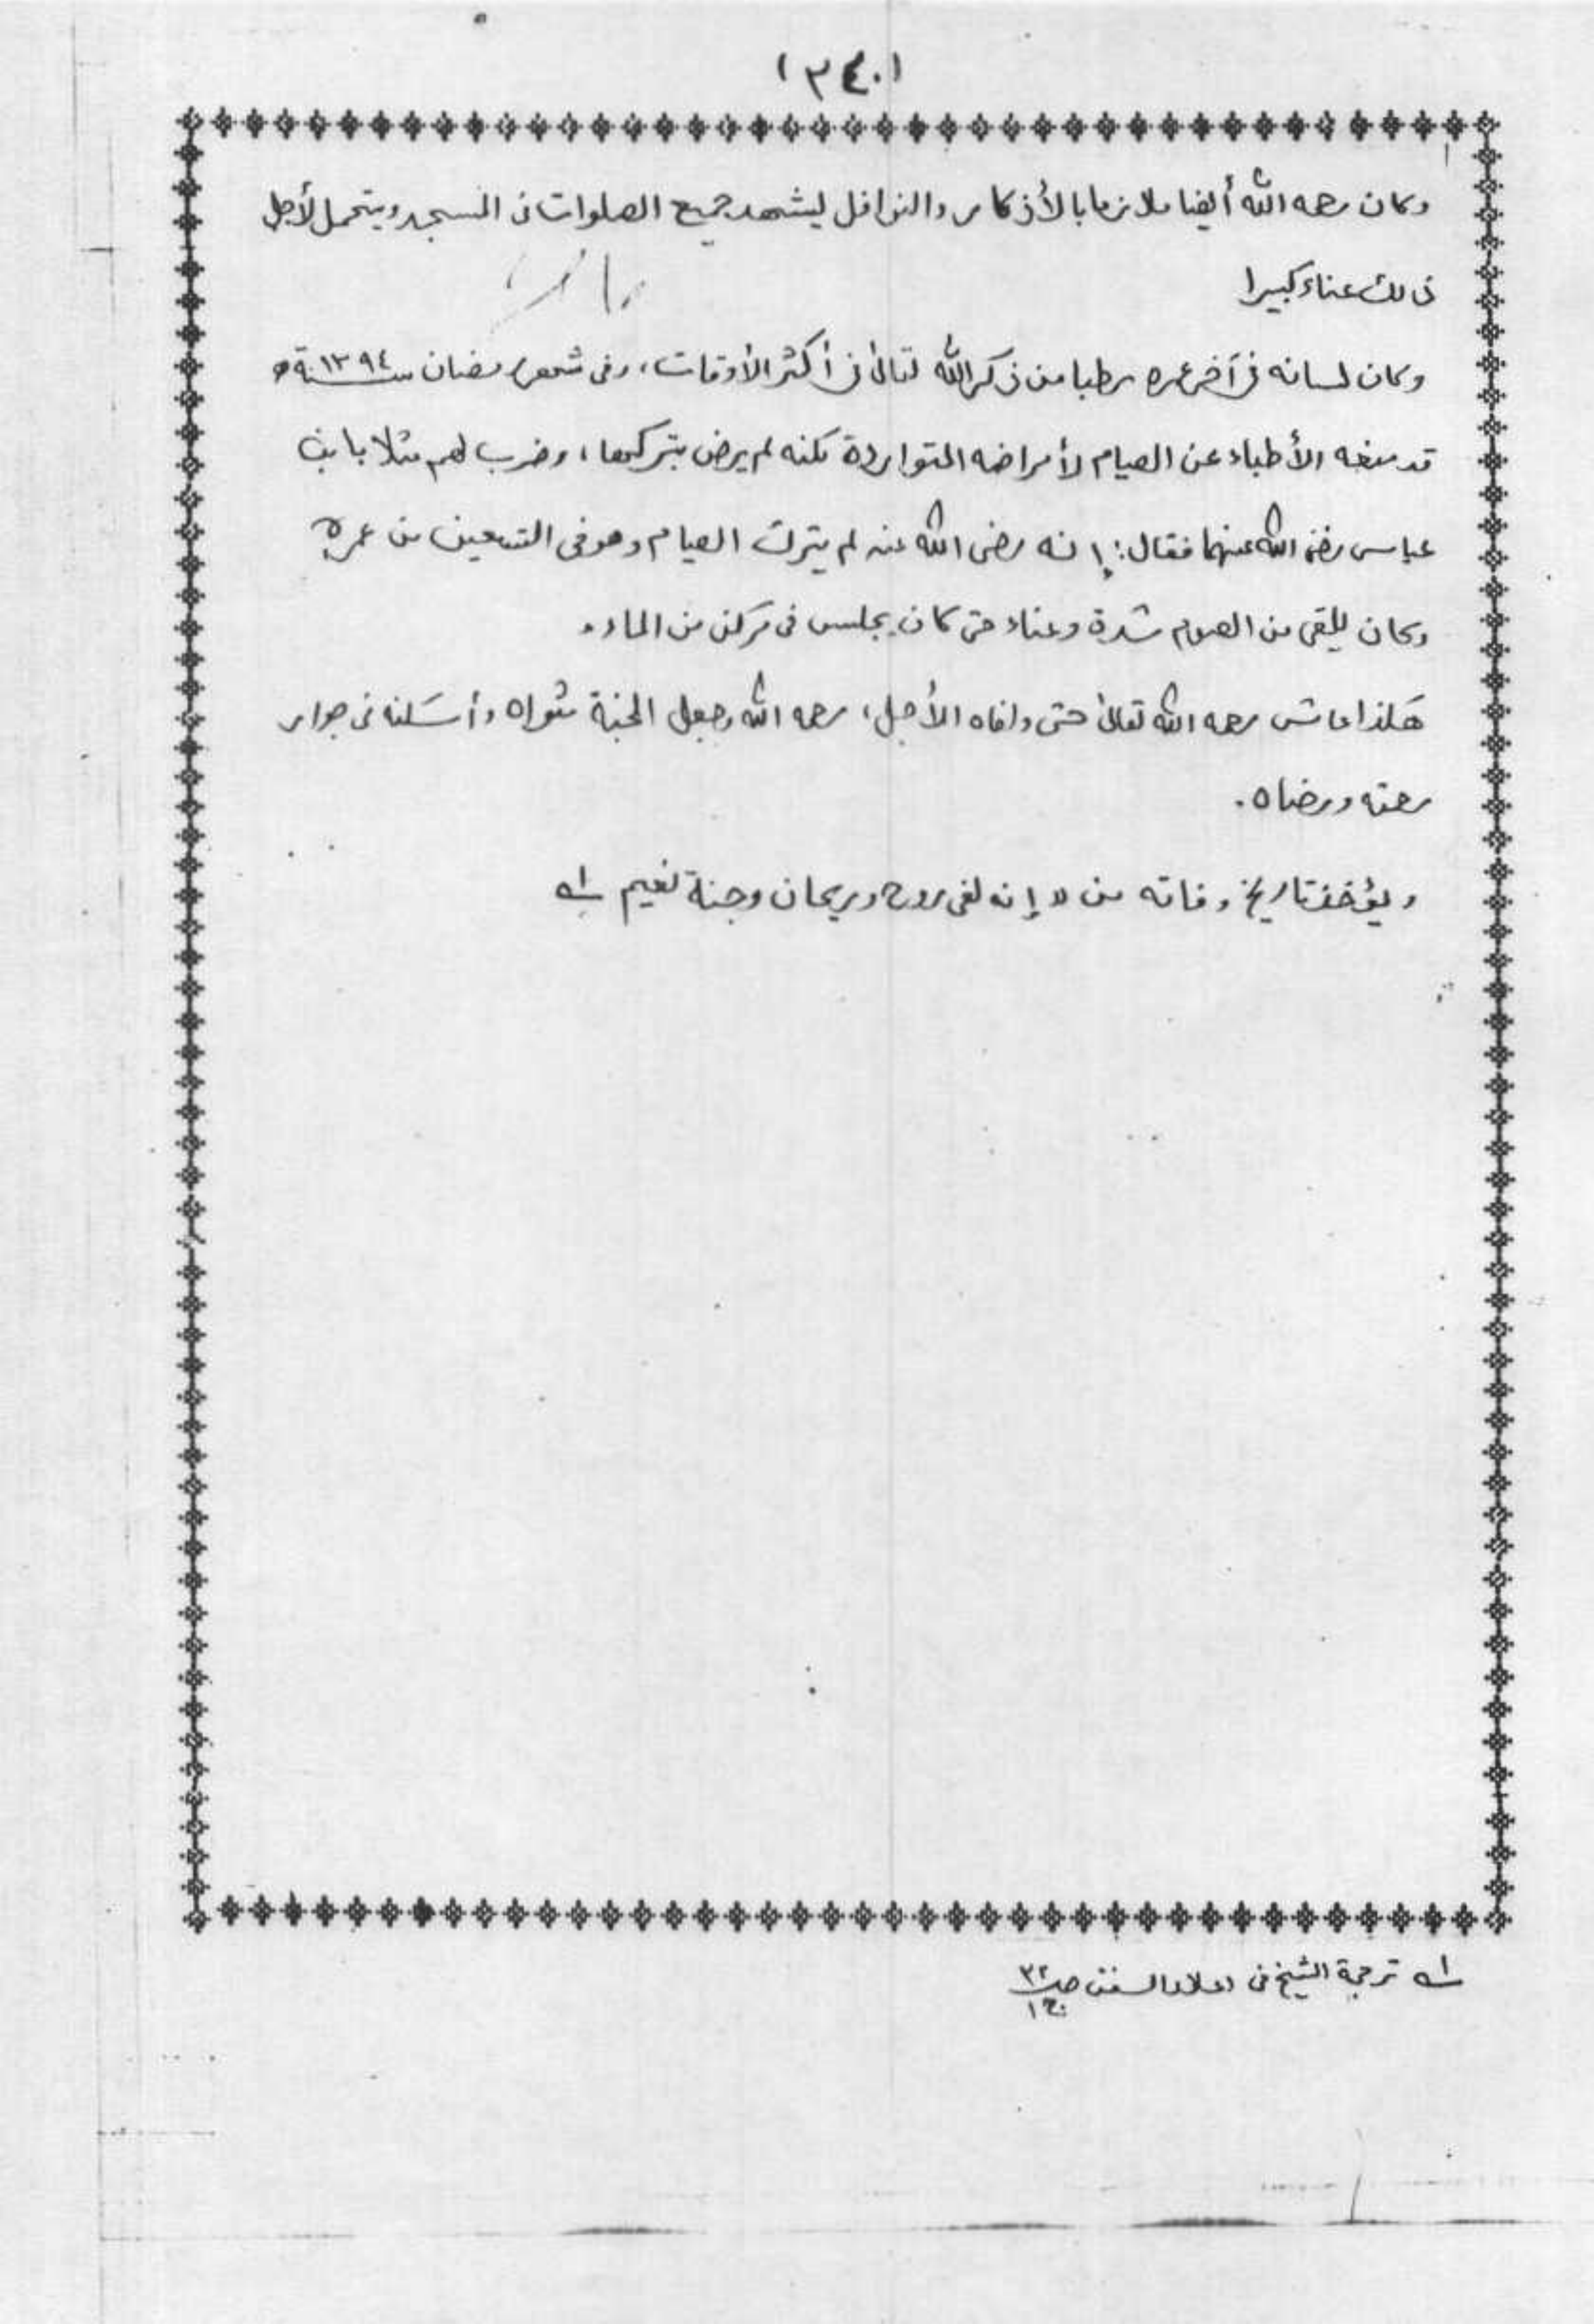 (٣٤٠)
وكان رحمه الله أيضا ملازما بالأذكار والنوافل ليشهد جميع الصلوات فى المسجد ويتحمل لأجل
ذالك عناء كبيرا
وكان لسانه فى آخر عمره رطبا من ذكر الله تعالىٰ فى أكثر الأوقات، وفى شهر رمضان سنة ١٣٩٤ه
قد منعه الأطباء عن الصيام لأمراضه المتواردة لكنه لم يرض بتركها، وضرب لهم مثلا بابن
عباس رضى الله عنهما فقال: إنه رضى الله عنه لم يترك الصيام وهو فى التسعين من عمره
وكان يلقى من الصوم شدة وعناء حتى كان يجلس فى مركن من الماء.
هٰكذا عاش رحمه الله تعالىٰ حتى وافاه الأجل، رحمه الله وجعل الجنة مثواه وأسكنه فى جوار
رحمته ورضاه.
ويؤخذ تاريخ وفاته من "إنه لفى روح وريحان وجنة نعيم ؂١
؂١ ترجمة الشيخ فى اعلاء السنن ص ٣٢ ج ١